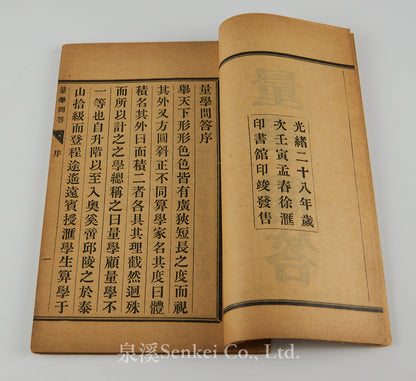 光緒二十八年歲
次壬寅孟春徐滙
印書館印竣發售
量學問答序
舉天下形形色色皆有廣狹短長之度而視
其外又方圓斜正不同算學家名其度曰體
積名其外曰面積二者各具其理截然迥殊
而所以計之之學總稱之曰量學顧量學不
一等也自升階以至入奧奚啻邱陵之於泰
山拾級而登程途遙遠賓授滙學生算學于
量學問答
序
一
泉溪Senkei Co., Ltd.